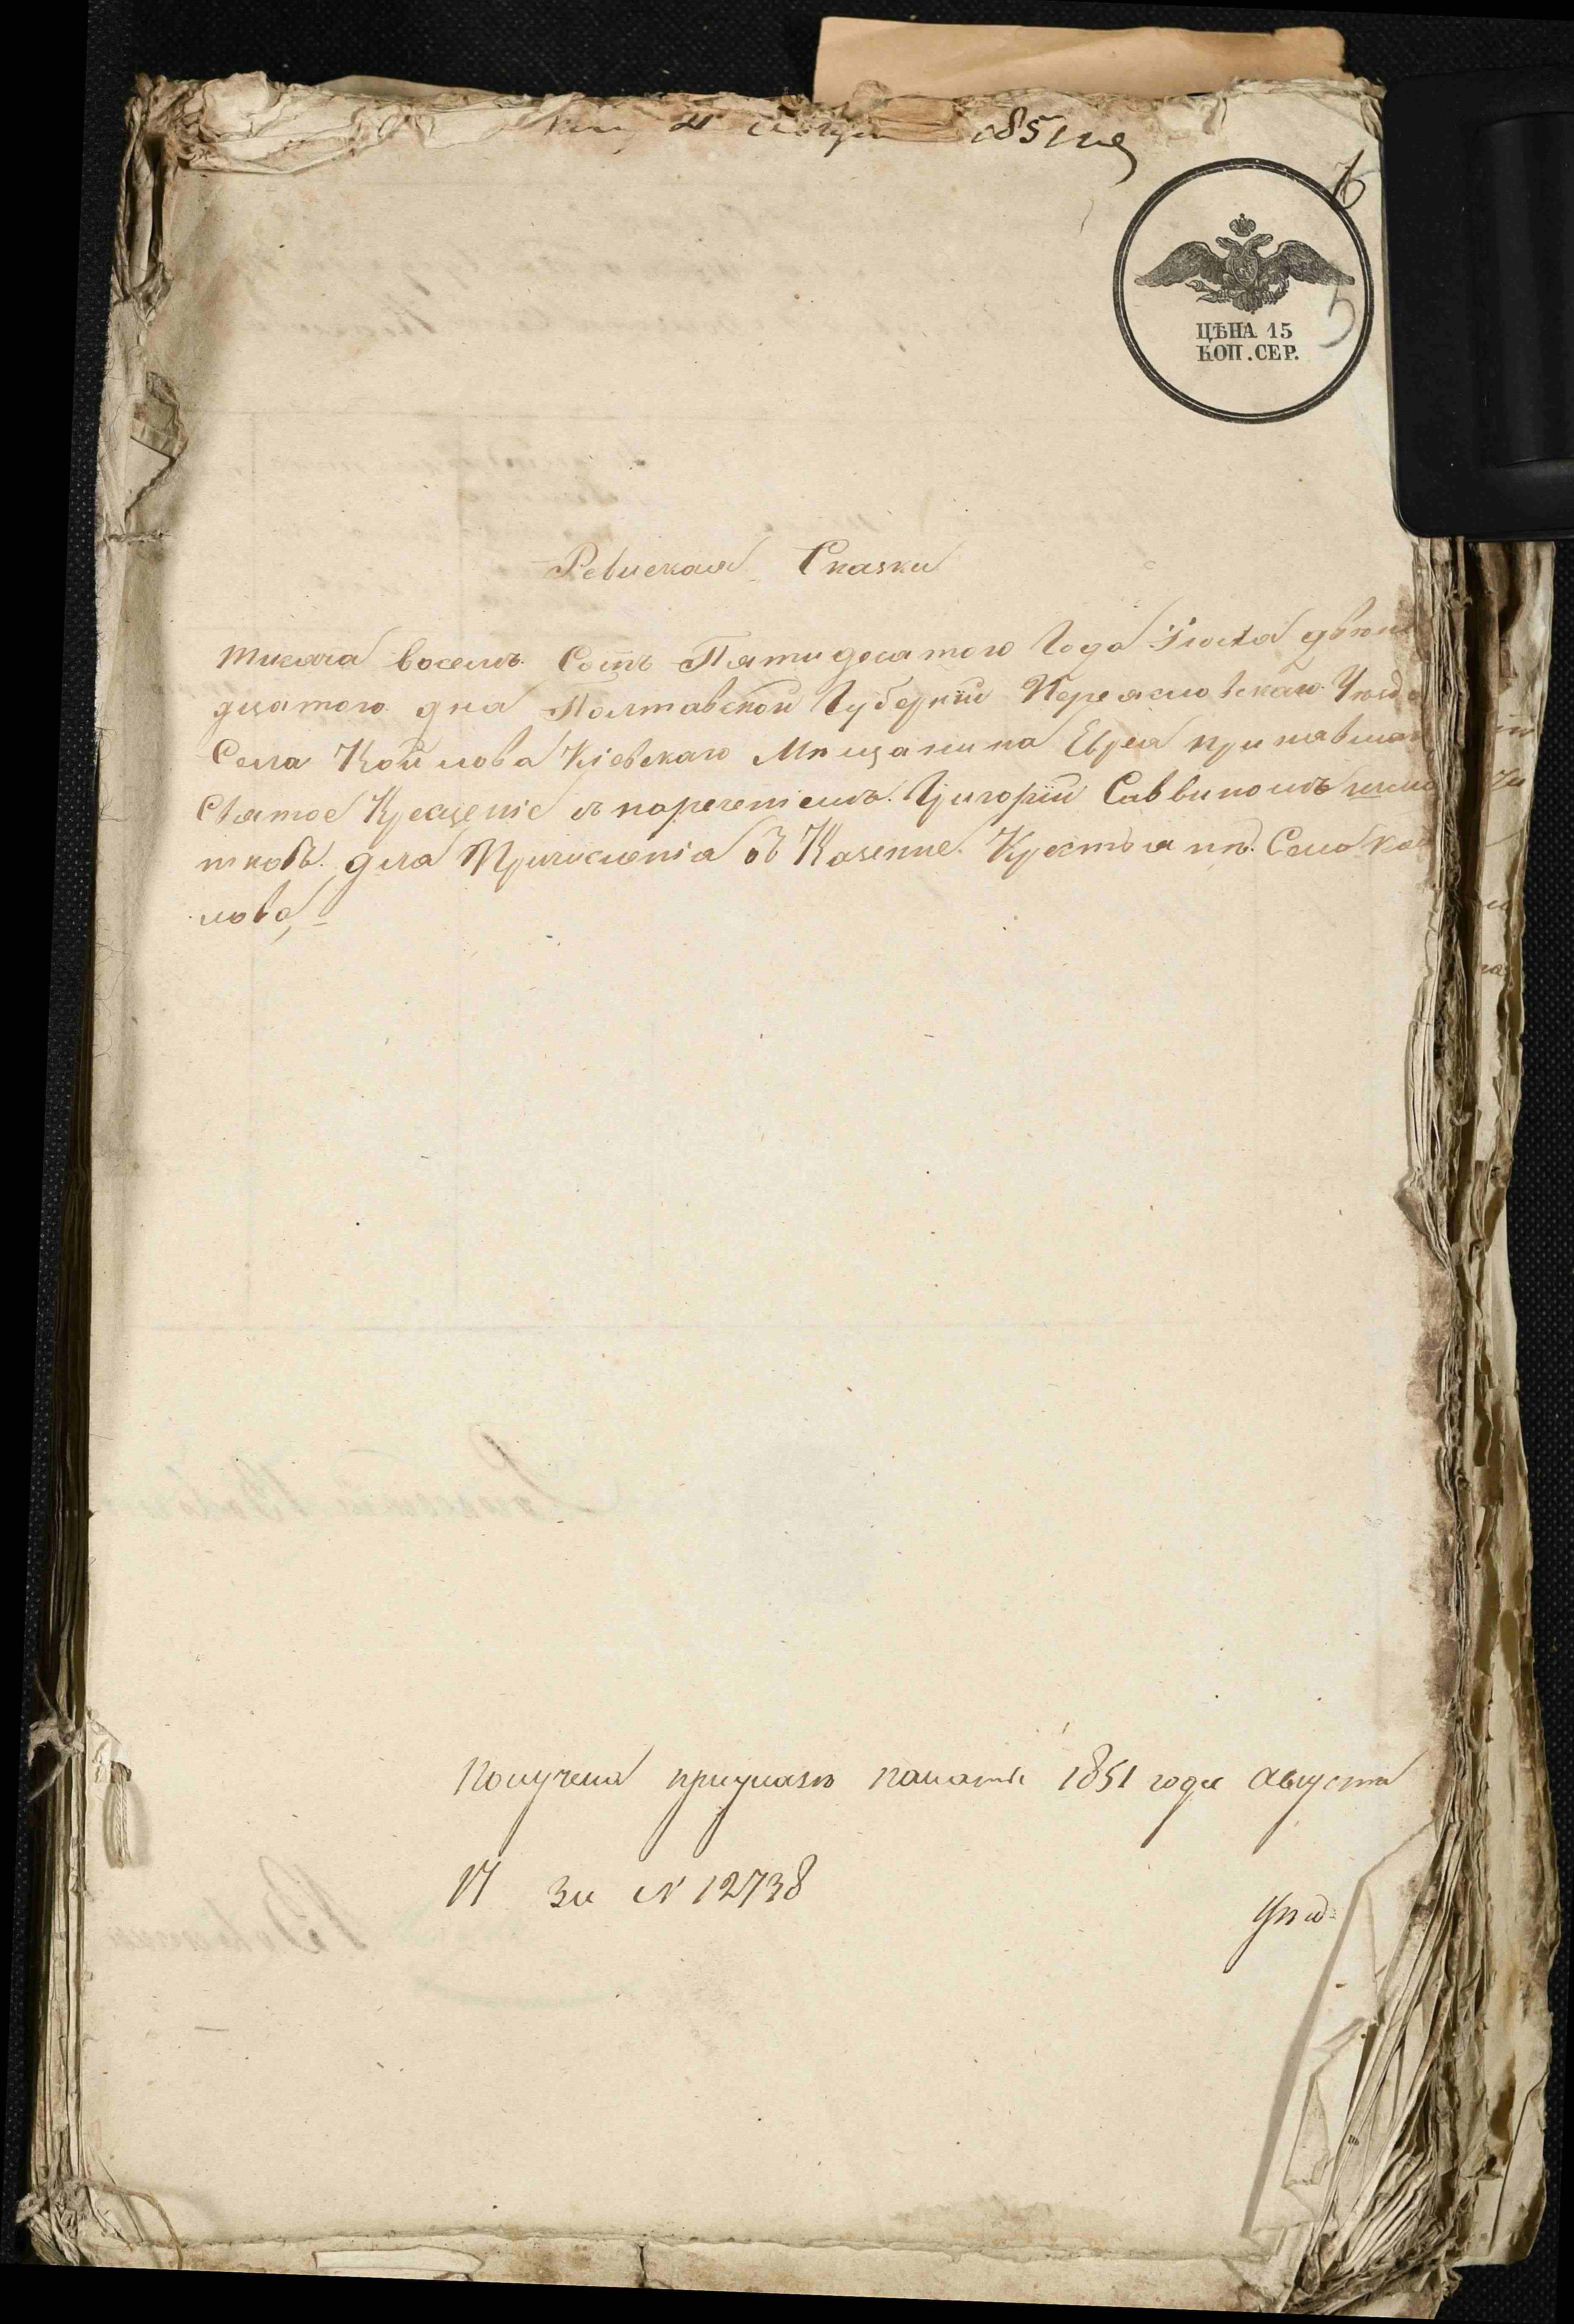 1851 го
ЦѢНА 15
КОП. СЕР.
5
Ревиская Сказка
Тисяча восемъ Сотъ Пятидесатого Года Іюля двѣна
дцатого дна Полтавской Губерніи Переясловскаго Уезда
Села Койлова Кіевскаго Мѣщанина Еврея принявшаго
Святое Крещеніе съ наречениемъ Григорій Саввиномъ
для Причисленія въ Казенне Крестьянъ Села Кой
лова,
Получена при указѣ палаты 1851 года Августа
17 за № 12738